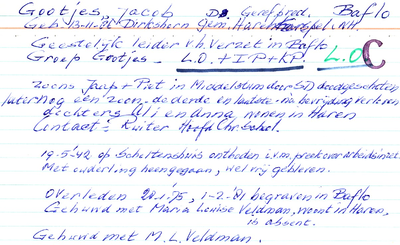 Gootjes, Jacob Ds. Gerefpred. Baflo
Geb. 13-11-'86 Dirkshorn Gem. Harenkarspel. N.H.
Geestelijk leider v.h. Verzet in Baflo
Groep Gootjes - L.O. + I.P + K.P. L.O. C
zoons Jaap + Piet in Middelstum door SD doodgeschoten
later nog een zoon, de derde en laatste, na bevrijding verloren
dochters Ali en Anna wonen in Haren
Contact: Ruiter Hoofd Chr. School.
19-5-'42 op Scholtenshuis ontboden i.v.m. preek over arbeidsinzet.
Met ouderling heengegaan, wel vrij gebleven.
Overleden 28-1-'75, 1-2-'81 begraven in Baflo
Gehuwd met Maria Louise Veldman, woont in Haren,
is absent.
Gehuwd met M.L. Veldman.